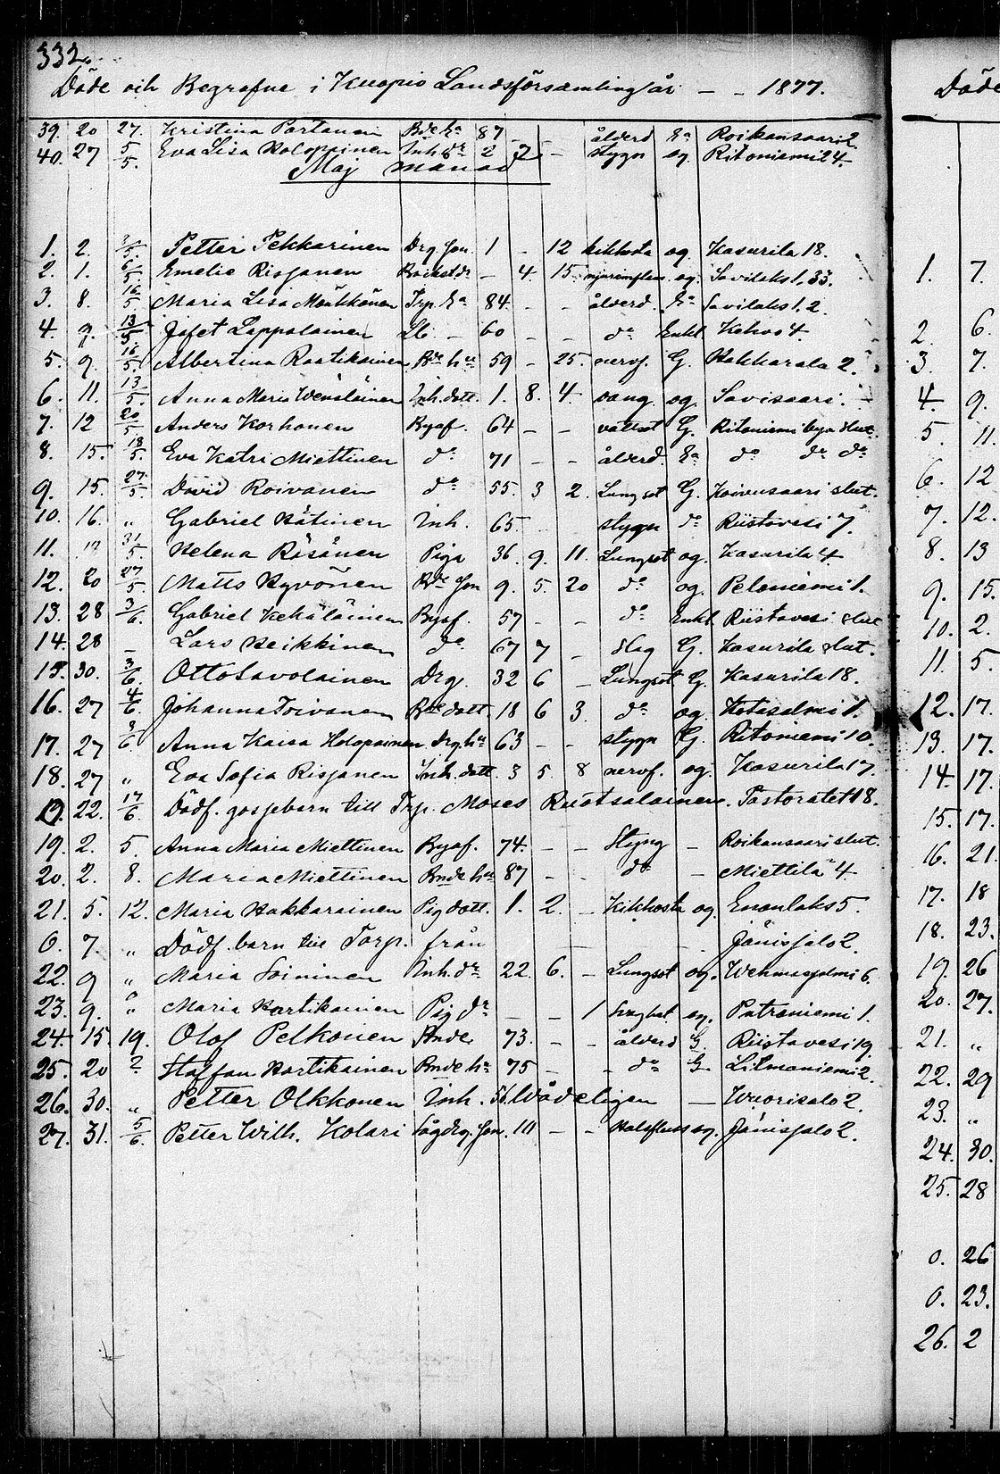 332.
Döde och Begrafne i Kuopio Landsförsamling år - - 1877.
39. 20 27. Kristina Partanen Bde Ea 87 - - ålderd. Ea Roikansaari 2
40. 27 5/5. Eva Lisa Holopainen Inh. dr 2 7 - stygn og Ritoniemi 24
Maj månad
1. 2. Petter Pekkarinen Drg son 1 - 12 kikhosta og Kasurila 18.
2. 1. 6/5 Emelie Risjanen - 4 15 og. Savilaks 1, 33.
3. 8. 16/5 Maria Lisa Mönkkönen Trp. Ea 84 - - ålderd. Ea Savilaks 1. 2
4. 9. 13/5. Jafet Lappalainen - 60 - - do Enkl. Kehvo 4.
5. 9. 16/5. Albertina Raatikainen Bde hu 59 - 25. nervf. G. Hakkarala 2.
6. 11. 13/5. Anna Maria Wenäläinen Inh. dott. 1. 8. 4 og. Savisaari.
7. 12 20/5 Anders Korhonen Byaf. 64 - - G. Ritoniemi bya slut.
8. 15. 13/5. Eva Katri Miettinen do 71 - - ålderd. Ea do do do
9. 15. 27/5. David Roivanen do 55. 3 2. Lungsot G. Koivusaari slut.
10. 16. " Gabriel Hätinen Inh. 65. stygn do Riistavesi 7.
11. 31/5. Helena Räsänen Piga 36. 9. 11. Lungsot og. Kasurila 4
12. 20 27/5. Matts Hyvönen Bde son 9. 5. 20 do og. Peloniemi 1.
13. 28 3/6. Gabriel Kekäläinen Byaf. 57 - - do Enkl. Riistavesi slut
14. 28 - Lars Heikkinen do 67 7 - slag G. Kasurila slut.
15. 30. 3/6. Otto Savolainen Drg. 32 6 - Lungsot G. Kasurila 18.
16. 27 4/6. Johanna Toivanen Bde dott. 18 6 3. do og. Kotasalmi 1.
17. 27 3/6 Anna Kaisa Holopainen Drg. hu 63 - - stygn G. Ritoniemi 10.
18. 27 " Eva Sofia Risjanen Inh. dott. 3 5 8 nervf. og. Kasurila 17.
0. 22. 17/6. Dödf. gossebarn till Trp. Moses Ruotsalainen. Pastoratet 18.
19. 2. 5. Anna Maria Miettinen Byaf. 74. - - Styng - Roikansaari slut.
20. 2. 8. Maria Miettinen Bnde hu 87 - - do - Miettilä 4
21. 5. 12. Maria Hakkarainen Pig dott. 1. 2. - Kikhosta og. Enonlaks 5.
0. 7. " Dödf. barn till Torp. från - - Jänisjalo 2.
22. 9 " Maria Toininen Inh. dr 22. 6. - Lungsot og. Wehmasjalmi 6.
23. 9. " Maria Hartikainen Pig dr - - 1 og. Putroniemi 1.
24. 15. 19. Olof Pelkonen Bnde. 73. - - ålderd G. Riistavesi 19.
25. 20 2. Staffan Hartikainen Bnde hu 75 - - do G. Litmaniemi 2.
26. 30. " Petter Olkkonen Inh. 56. Wådeligen - Wuorisalo 2.
27. 31. 5/6. Petter Wilh. Kolari son. - - og. Jänisjalo 2.
Döde
1. 7.
2. 6.
3. 7.
4. 9.
5. 11.
6. 12
7. 12.
8. 13
9. 15.
10. 2.
11. 5.
12. 17.
13. 17.
14. 17.
15. 17.
16. 21.
17. 18
18. 23.
19. 26
20. 27.
21. "
22. 29
23. "
24. 30.
25. 28
0. 26
0. 23.
26. 2